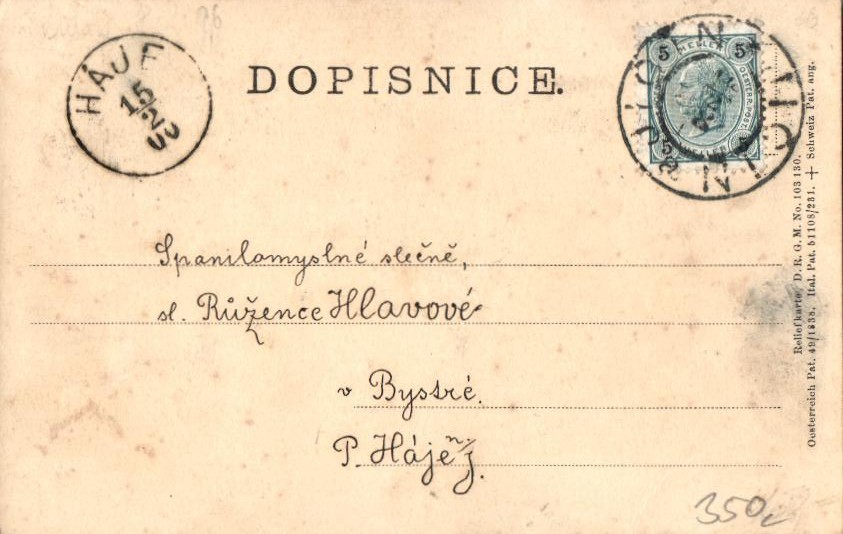 HÁJE
15/2 00
DOPISNICE.
5 HELLER 5
5 5
Spanilomyslné slečně,
sl. Růžence Hlavové
v Bystré.
P. Háje n/j.
350,-
Reliefkarte. D. R. G. M. No. 103 130.
Oesterreich Pat. 49/1838. Ital. Pat. 51108/231. + Schweiz Pat. ang.